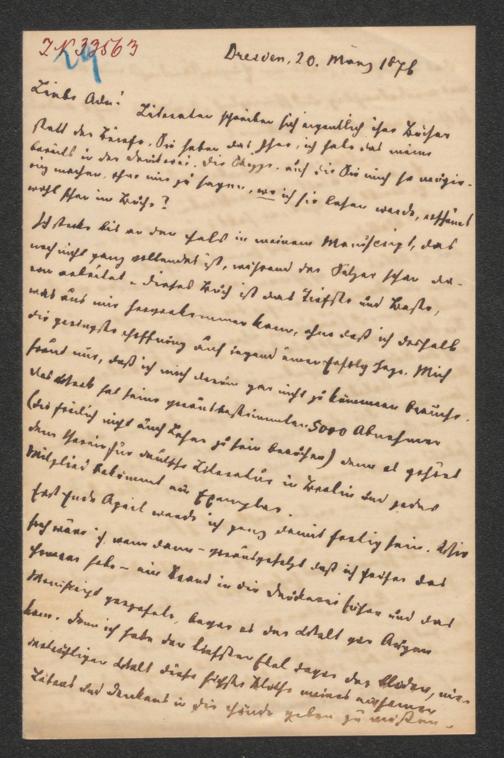 IN 33563
29
Dresden, 20. März 1876
Liebe Ada! Literaten schreiben sich eigentlich ihre Bücher
statt der Briefe. Sie haben das Ihre, ich habe das meine
bereits in der Druckerei. Die Skizze, auf die Sie mich so neugie-
rig machen, ohne mir zu sagen, wo ich sie lesen werde, erscheint
wohl schon im Buche?
Ich stecke bis an den Hals in meinem Manuscript, das
noch nicht ganz vollendet ist, während der Setzer schon da-
ran arbeitet – dieses Buch ist das Tiefste und Beste,
was aus mir herauskommen kann, ohne daß ich deshalb
die geringste Hoffnung auf irgend einen Erfolg hege. Mich
freut nur, daß ich mich darum gar nicht zu kümmern brauche.
Das Werk hat seine vorausbestimmten 5000 Abnehmer
(die freilich nicht auch Leser zu sein brauchen) denn es gehört
dem Verein für deutsche Literatur in Berlin und jedes
Mitglied bekommt ein Exemplar.
Erst Ende April werde ich ganz damit fertig sein. Wie
froh wäre ich, wenn dann – vorausgesetzt daß ich früher das
Honorar habe – ein Brand in die Druckerei führe und das
Manuscript verzehrte, bevor es der Welt vor Augen
kam. Denn ich habe den tiefsten Ekel davor der
Welt diese meines einsamen
Lebens und Denkens in die Hände geben zu müssen.